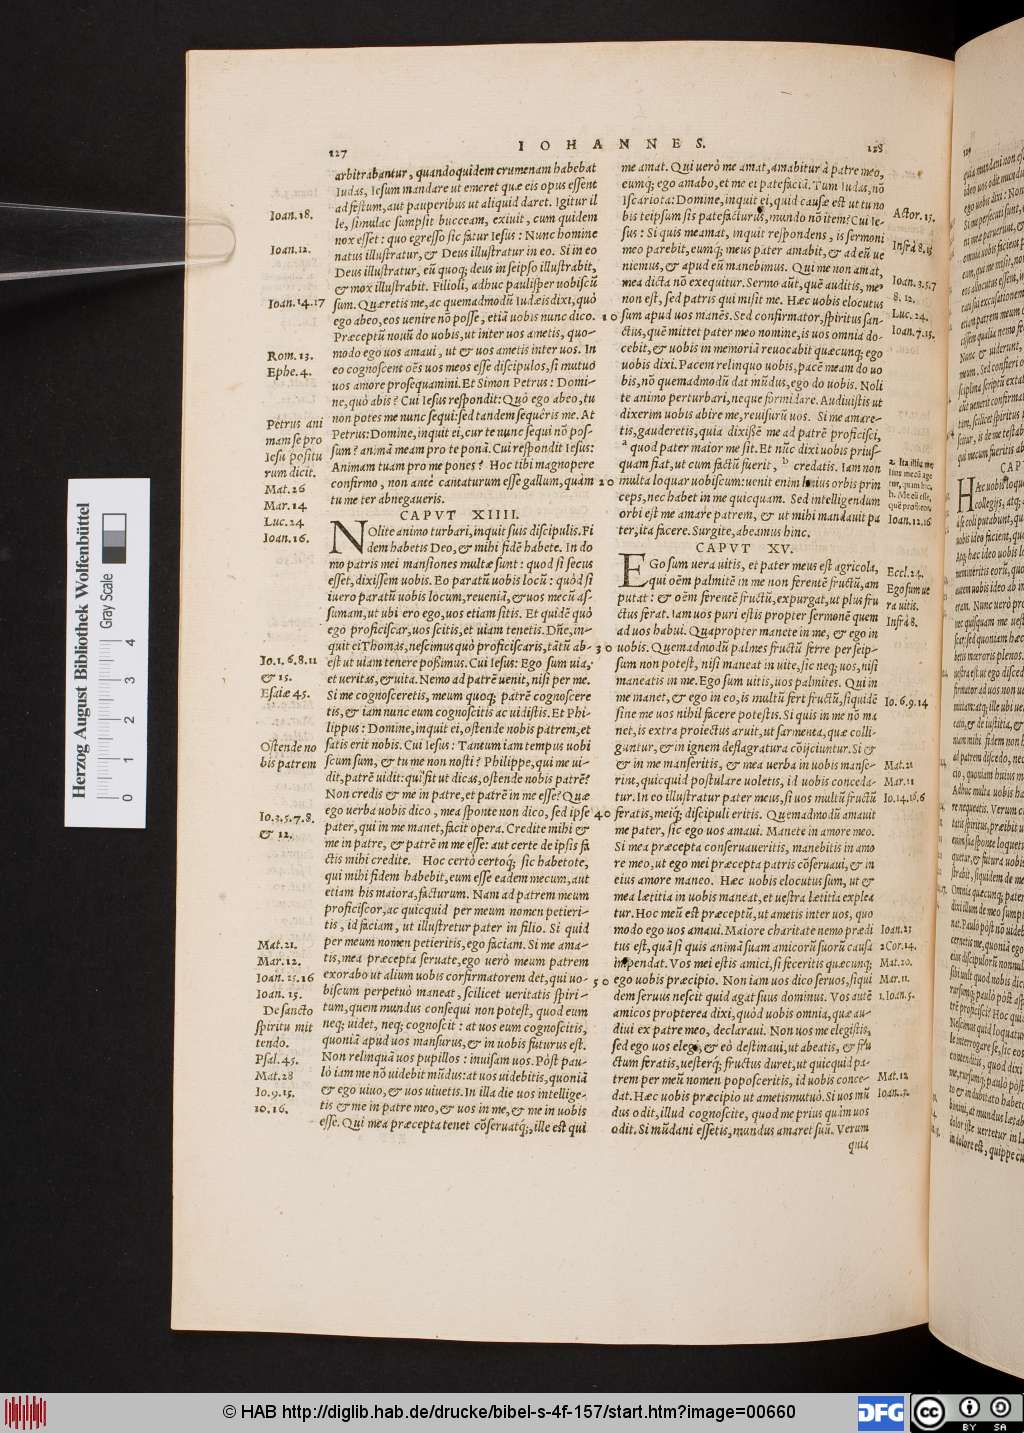 IOHANNES.
127
128
arbitrabantur, quandoquidem crumenam habebat
Iudas, Iesum mandare ut emeret quæ eis opus essent
ad festum, aut pauperibus ut aliquid daret. Igitur il
le, simulac sumpsit bucceam, exiuit, cum quidem
nox esset: quo egresso sic fatur Iesus: Nunc homine
natus illustratur, & Deus illustratur in eo. Si in eo
Deus illustratur, eũ quoq; deus in seipso illustrabit,
& mox illustrabit. Filioli, adhuc paulisper uobiscũ
sum. Quæretis me, ac quemadmodũ Iudæis dixi, quò
ego abeo, eos uenire nõ posse, etiã uobis nunc dico.
Præceptũ nouũ do uobis, ut inter uos ametis, quo-
modo ego uos amaui, ut & uos ametis inter uos. In
eo cognoscent oẽs uos meos esse discipulos, si mutuo
uos amore prosequamini. Et Simon Petrus: Domi-
ne, quò abis? Cui Iesus respondit: Quò ego abeo, tu
non potes me nunc sequi: sed tandem sequêris me. At
Petrus: Domine, inquit ei, cur te nunc sequi nõ pos-
sum? animã meam pro te ponã. Cui respondit Iesus:
Animam tuam pro me pones? Hoc tibi magnopere
confirmo, non antè cantaturum esse gallum, quàm
tu me ter abnegaueris.
CAPVT XIIII.
NOlite animo turbari, inquit suis discipulis. Fi
dem habetis Deo, & mihi fidẽ habete. In do
mo patris mei mansiones multæ sunt: quod si secus
esset, dixissem uobis. Eo paratũ uobis locũ: quòd si
iuero paratũ uobis locum, reueniã, & uos mecũ as-
sumam, ut ubi ero ego, uos etiam sitis. Et quidẽ quò
ego proficiscar, uos scitis, et uiam tenetis. Dñe, in-
quit ei Thomas, nescimus quò proficiscaris, tãtũ ab-
est ut uiam tenere possimus. Cui Iesus: Ego sum uia,
et ueritas, & uita. Nemo ad patrẽ uenit, nisi per me.
Si me cognosceretis, meum quoq; patrẽ cognoscere
tis, & iam nunc eum cognoscitis ac uidistis. Et Phi-
lippus: Domine, inquit ei, ostende nobis patrem, et
satis erit nobis. Cui Iesus: Tantum iam tempus uobi
scum sum, & tu me non nosti? Philippe, qui me ui-
dit, patrẽ uidit: qui fit ut dicas, ostende nobis patrẽ?
Non credis & me in patre, et patrẽ in me esse? Quæ
ego uerba uobis dico, mea sponte non dico, sed ipse
pater, qui in me manet, facit opera. Credite mihi &
me in patre, & patrẽ in me esse: aut certe de ipsis fa
ctis mihi credite. Hoc certò certoq; sic habetote,
qui mihi fidem habebit, eum esse eadem mecum, aut
etiam his maiora, facturum. Nam ad patrem meum
proficiscor, ac quicquid per meum nomen petieri-
tis, id faciam, ut illustretur pater in filio. Si quid
per meum nomen petieritis, ego faciam. Si me ama-
tis, mea præcepta seruate, ego uerò meum patrem
exorabo ut alium uobis confirmatorem det, qui uo-
biscum perpetuò maneat, scilicet ueritatis spiri-
tum, quem mundus consequi non potest, quod eum
neq; uidet, neq; cognoscit: at uos eum cognoscitis,
quoniã apud uos mansurus, & in uobis futurus est.
Non relinquã uos pupillos: inuisam uos. Pòst pau-
lò iam me nõ uidebit mũdus: at uos uidebitis, quoniã
& ego uiuo, & uos uiuetis. In illa die uos intellige-
tis & me in patre meo, & uos in me, & me in uobis
esse. Qui mea præcepta tenet cõseruatq;, ille est qui
Ioan. 18.
Ioan. 12.
Ioan. 14. 17
Rom. 13.
Ephe. 4.
Petrus ani
mam se pro
Iesu positu
rum dicit.
Mat. 26
Mar. 14
Luc. 24
Ioan. 16.
Io. 1. 6. 8. 11
& 15.
Esaiæ 45.
Ostende no
bis patrem
Io. 3. 5. 7. 8.
& 12.
Mat. 21.
Mar. 12.
Ioan. 15. 16
Ioan. 15.
De sancto
spiritu mit
tendo.
Psal. 45.
Mat. 28
Io. 9. 15.
10. 16.
10
20
30
40
50
me amat. Qui uerò me amat, amabitur à patre meo,
eumq; ego amabo, et me ei patefaciã. Tum Iudas, nõ
Iscariota: Domine, inquit ei, quid causæ est ut tu no
bis teipsum sis patefacturus, mundo nõ item? Cui Ie-
sus: Si quis me amat, inquit respondens, is sermoni
meo parebit, eumq; meus pater amabit, & ad eũ ue
niemus, & apud eũ manebimus. Qui me non amat,
mea dicta nõ exequitur. Sermo aũt, quẽ auditis, me9
non est, sed patris qui misit me. Hæc uobis elocutus
sum apud uos manẽs. Sed confirmator, spiritus san-
ctus, quẽ mittet pater meo nomine, is uos omnia do-
cebit, & uobis in memoriã reuocabit quæcunq; ego
uobis dixi. Pacem relinquo uobis, pacẽ meam do uo
bis, nõ quemadmodũ dat mũdus, ego do uobis. Noli
te animo perturbari, neque formidare. Audiuistis ut
dixerim uobis abire me, reuisurũ uos. Si me amare-
tis, gauderetis, quia dixissẽ me ad patrẽ proficisci,
a quod pater maior me sit. Et nũc dixi uobis prius-
quam fiat, ut cum factũ fuerit, b credatis. Iam non
multa loquar uobiscum: uenit enim huius orbis prin
ceps, nec habet in me quicquam. Sed intelligendum
orbi est me amare patrem, & ut mihi mandauit pa
ter, ita facere. Surgite, abeamus hinc.
CAPVT XV.
EGo sum uera uitis, et pater meus est agricola,
qui oẽm palmitẽ in me non ferentẽ fructũ, am
putat: & oẽm ferentẽ fructũ, expurgat, ut plus fru
ctus ferat. Iam uos puri estis propter sermonẽ quem
ad uos habui. Quapropter manete in me, & ego in
uobis. Quemadmodũ palmes fructũ ferre per seip-
sum non potest, nisi maneat in uite, sic neq; uos, nisi
maneatis in me. Ego sum uitis, uos palmites. Qui in
me manet, & ego in eo, is multũ fert fructũ, siquidẽ
sine me uos nihil facere potestis. Si quis in me nõ ma
net, is extra proiectus aruit, ut sarmenta, quæ colli-
guntur, & in ignem deflagratura cõijciuntur. Si &
& in me manseritis, & mea uerba in uobis manse-
rint, quicquid postulare uoletis, id uobis conceda-
tur. In eo illustratur pater meus, si uos multũ fructũ
feratis, meiq; discipuli eritis. Quemadmodũ amauit
me pater, sic ego uos amaui. Manete in amore meo.
Si mea præcepta conseruaueritis, manebitis in amo
re meo, ut ego mei præcepta patris cõseruaui, & in
eius amore maneo. Hæc uobis elocutus sum, ut &
mea lætitia in uobis maneat, et uestra lætitia explea
tur. Hoc meũ est præceptũ, ut ametis inter uos, quo
modo ego uos amaui. Maiore charitate nemo prædi
tus est, quã si quis animã suam amicorũ suorũ causa
impendat. Vos mei estis amici, si feceritis quæcunq;
ego uobis præcipio. Non iam uos dico seruos, siqui
dem seruus nescit quid agat suus dominus. Vos autẽ
amicos propterea dixi, quòd uobis omnia, quæ au-
diui ex patre meo, declaraui. Non uos me elegistis,
sed ego uos elegi, & eò destinaui, ut abeatis, & fru
ctum feratis, uesterq; fructus duret, ut quicquid pa-
trem per meũ nomen poposceritis, id uobis conce-
dat. Hæc uobis præcipio ut ametis mutuò. Si uos mũ
dus odit, illud cognoscite, quod me prius quàm uos
odit. Si mũdani essetis, mundus amaret suũ. Verum
quia
Actor. 15.
Infrà 8. 15
Ioan. 3. 5. 7
8. 12.
Luc. 24.
Ioan. 7. 15.
Ioan. 12. 16
Eccl. 24.
Ego sum ue
ra uitis.
Infrà 8.
Io. 6. 9. 14
Mat. 21
Mar. 11
Io. 14. 16. 6
Ioan. 13
2 Cor. 14.
Mat. 20.
Mar. 11.
1. Ioan. 5.
Mat. 12
129
CAP
Herzog August Bibliothek Wolfenbüttel
Gray Scale
0 1 2 3 4
© HAB http://diglib.hab.de/drucke/bibel-s-4f-157/start.htm?image=00660
DFG
cc
BY SA